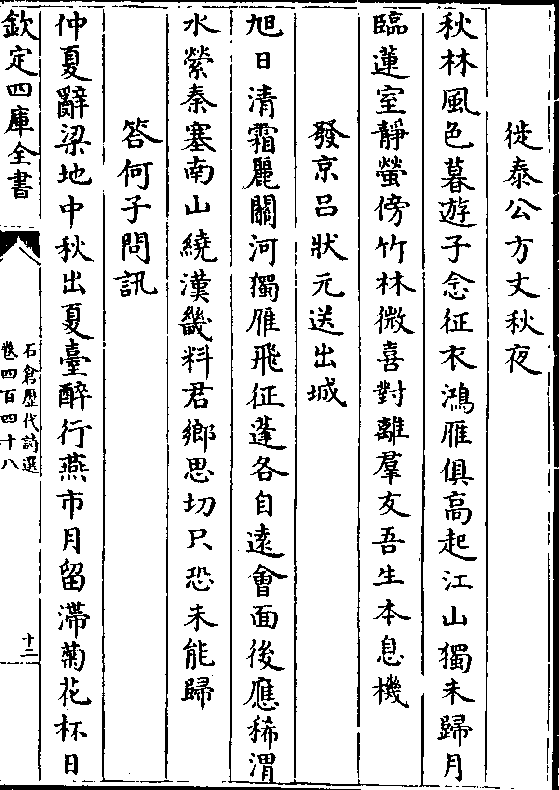 徙泰公方丈秋夜
秋林風色暮遊子念征衣鴻雁俱高起江山獨未歸月
臨蓮室靜螢傍竹林微喜對離羣友吾生本息機
發京呂狀元送出城
旭日清霜麗關河獨雁飛征蓬各自遠會面後應稀渭
水縈秦塞南山繞漢畿料君鄉思切只恐未能歸
答何子問訊
仲夏辭梁地中秋出夏臺醉行燕市月留滯菊花杯日
欽定四庫全書
石倉歷代詩選
卷四百四十八
十二